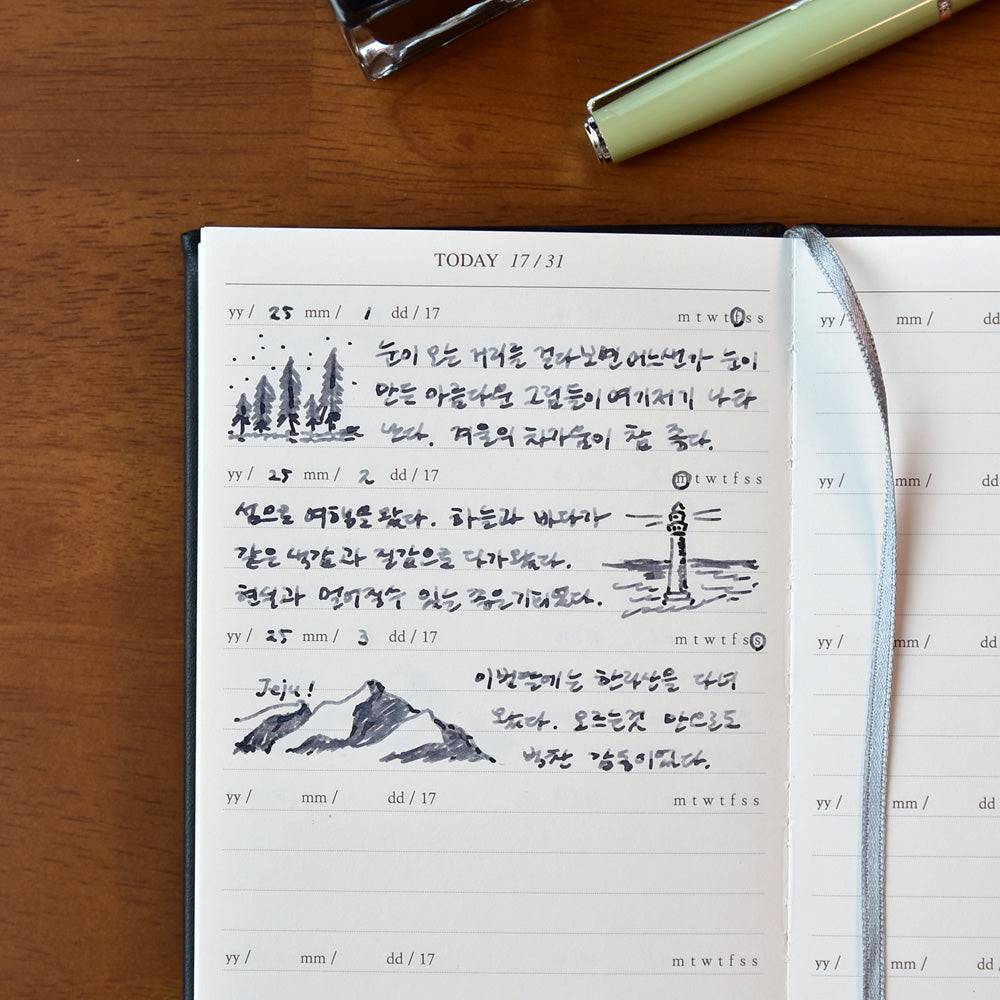 TODAY 17 / 31
yy / 25 mm / 1 dd / 17 m t w t f s s
눈이 오는 거리를 걷다보면 어느샌가 눈이
만든 아름다운 그림들이 여기저기 나타
난다. 겨울의 차가움이 참 좋다.
yy / 25 mm / 2 dd / 17 m t w t f s s
섬으로 여행을 왔다. 하늘과 바다가
같은 색감과 질감으로 다가왔다.
현실과 멀어질수 있는 좋은 기회였다.
yy / 25 mm / 3 dd / 17 m t w t f s s
Jeju!
이번달에는 한라산을 다녀
왔다. 오르는것 만으로도
벅찬 감동이었다.
yy / mm / dd / 17 m t w t f s s
yy / mm / dd / 17 m t w t f s s
yy / mm / dd
yy / mm / dd
yy / mm / dd
yy / mm / dd
yy / mm / dd